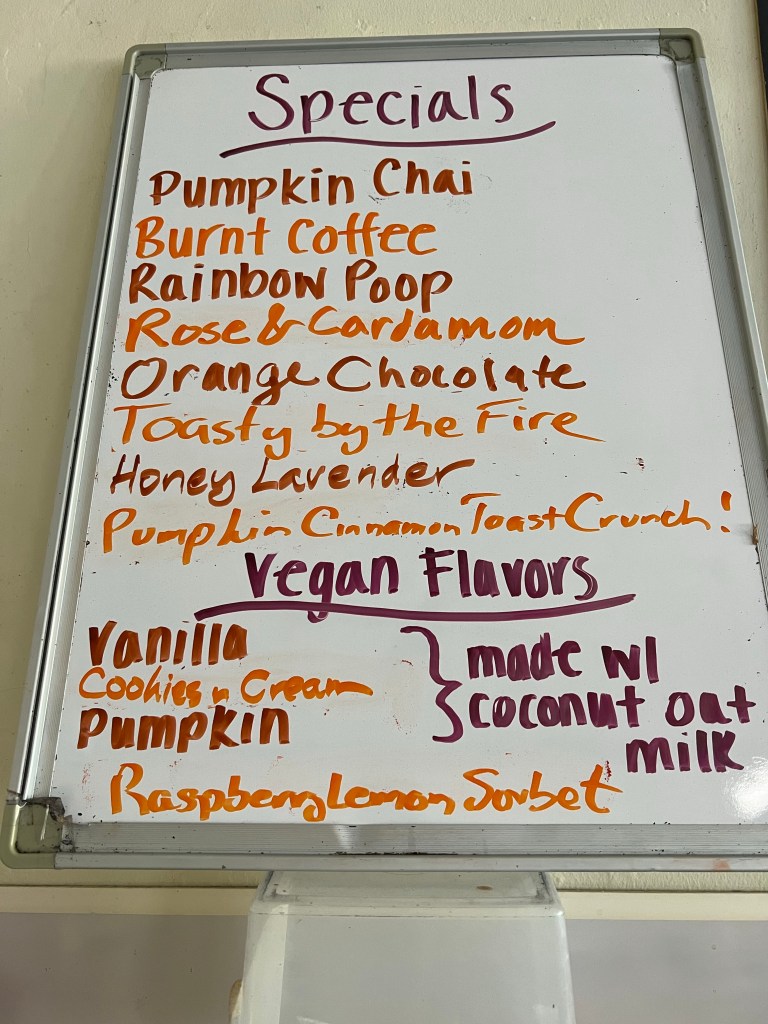 Specials
Pumpkin Chai
Burnt Coffee
Rainbow Poop
Rose & Cardamom
Orange Chocolate
Toasty by the Fire
Honey Lavender
Pumpkin Cinnamon Toast Crunch!
Vegan Flavors
Vanilla
Cookies n Cream
Pumpkin
made w/
coconut oat
milk
Raspberry Lemon Sorbet